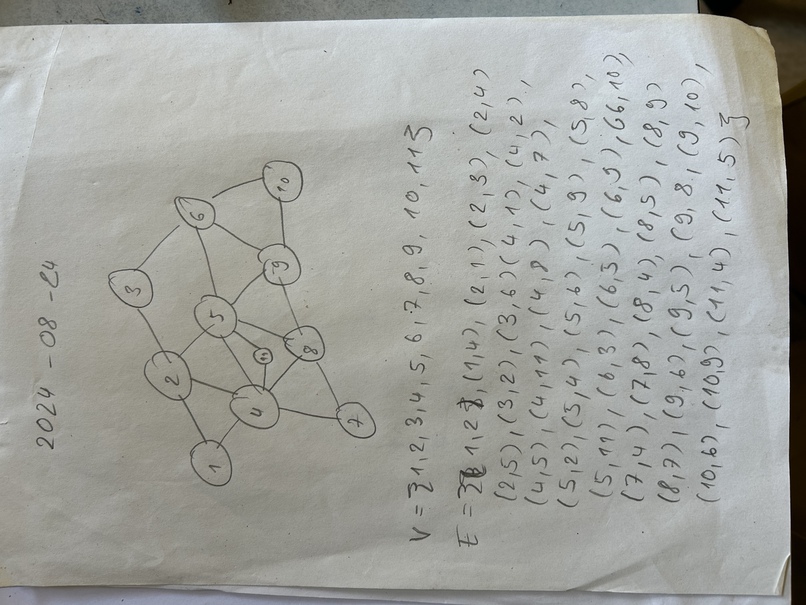 2024-08-24
3
6
2
1
5
10
9
4
11
8
7
V = {1,2,3,4,5,6,7,8,9,10,11}
E = {1,2), (1,4), (2,1), (2,3), (2,4)
(2,5), (3,2), (3,6) (4,1), (4,2),
(4,5), (4,11), (4,8), (4,7),
(5,2), (5,4), (5,6), (5,9), (5,8),
(5,11), (6,3), (6,5), (6,9), (6,10),
(7,4), (7,8), (8,4), (8,5), (8,9)
(8,7), (9,6), (9,5), (9,8, (9,10),
(10,6), (10,9), (11,4), (11,5)}